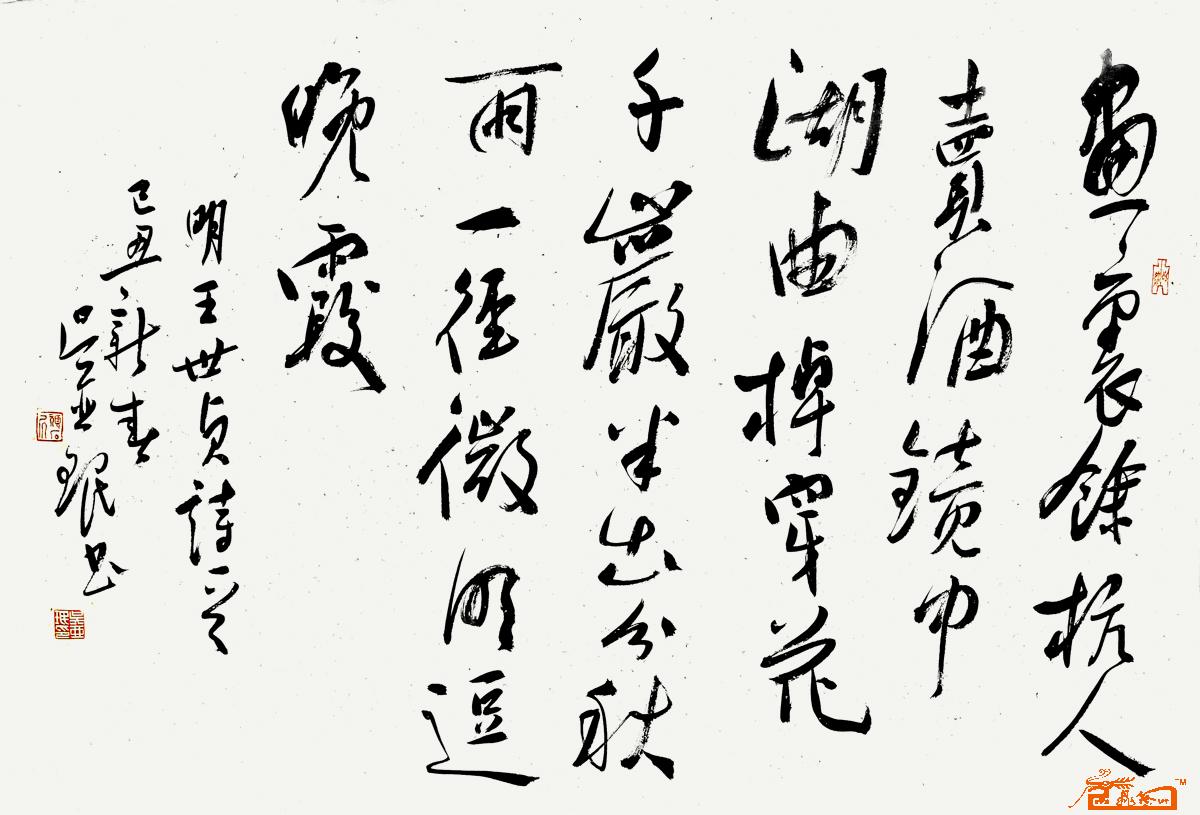 畫裏餘杭人
賣酒鏡中
湖曲棹穿花
千巖半出分秋
雨一徑微明逗
晚霞
明王世貞詩一首
己丑新春
吳亞珉书